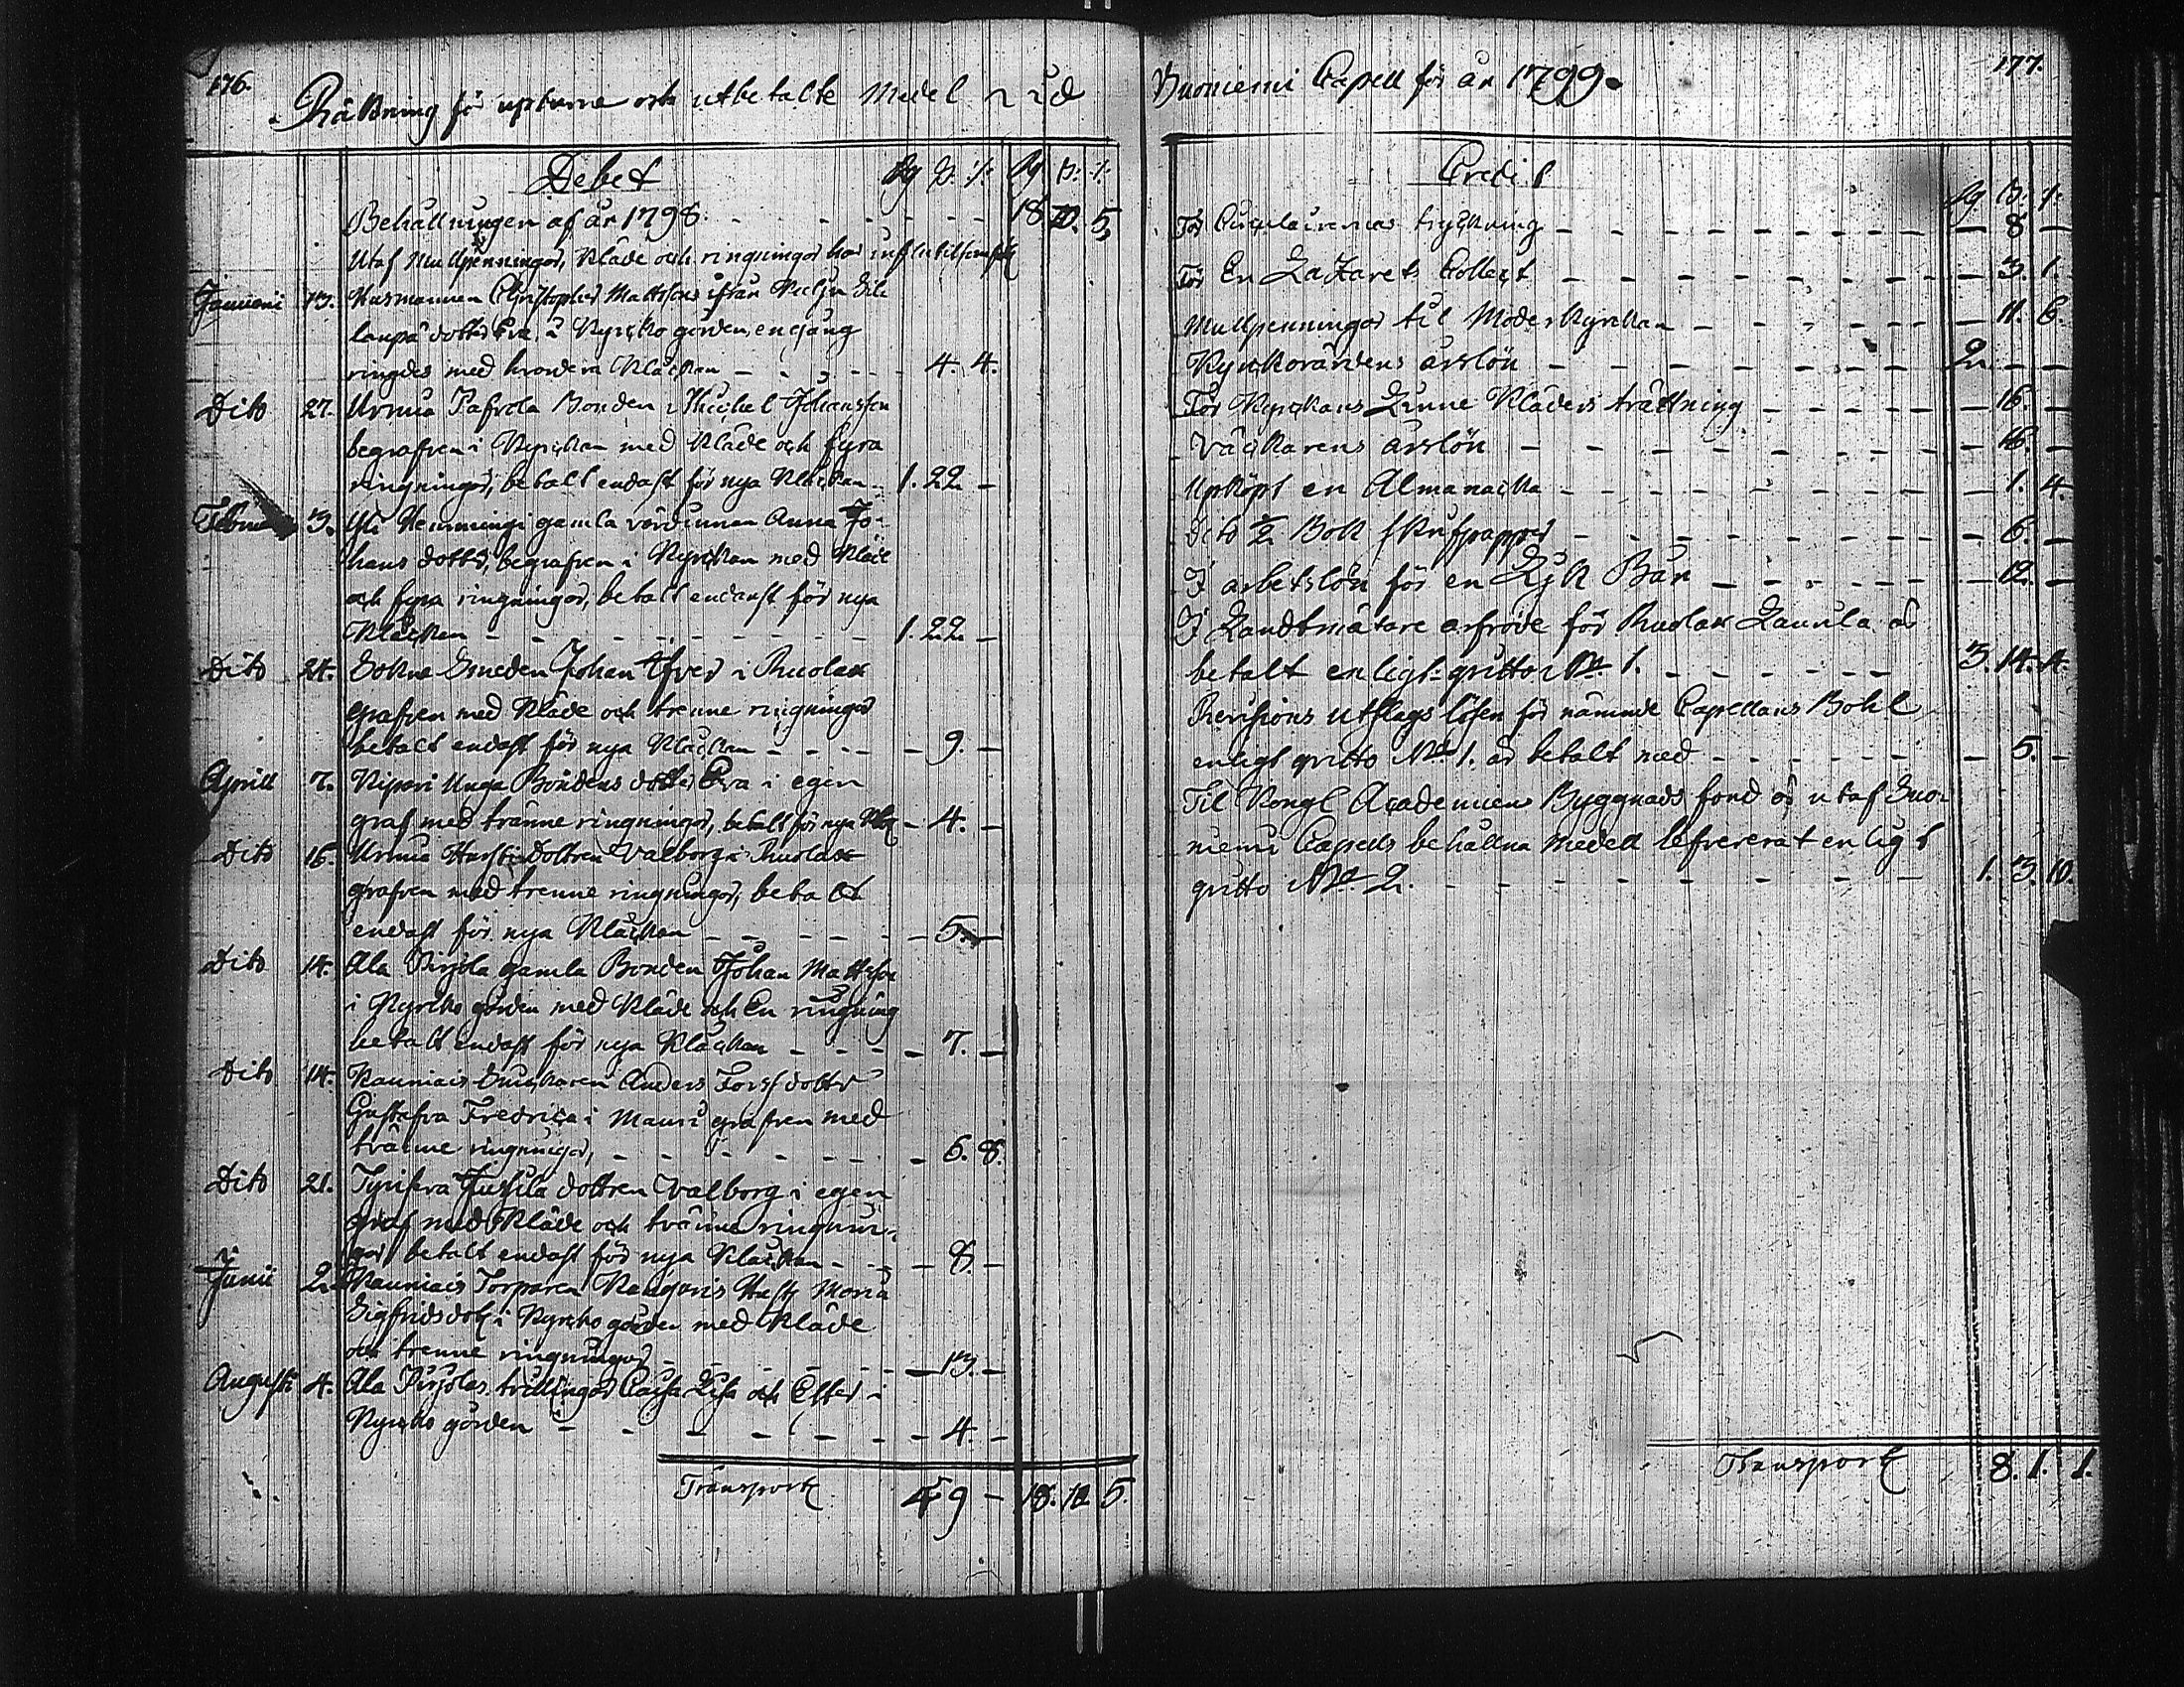 176.
Räkning för upburne och utbetalte Medel vid
Debet
Rd ß: /: Rd ß: /:
Behållningen af år 1798. - - - - - - - 18. 12. 5.
Utaf Mullpenningar, Kläde och ringningar har influtit
Januarii 13. Husmannen Christopher Mattsons ifrån
dotter Eva, i Kyrcko gården, en gång
ringdes med Klåckan - - - - - 4. 4.
Dito 27. Urnua Pafvola Bonden Michel Johansson
begrafven i Kyrckan med Kläde och fyra
ringningar, betalt endast för nya Klåckan - 1. 22. -
Februa 3. Yli Hemmingi gamla värdinnan Anna Jo-
hans dotter, begrafven i Kyrckan med Kläde
och fyra ringningar, betalt endast för nya
Klåckan - - - - - - - 1. 22. -
Dito 24. Sokne Smeden Johan i Ruolax
grafven med Kläde och trenne ringningar
betalt endast för nya Klåckan - - - - 9. -
Aprill 7. Kipari Unga Bondens dotter Eva i egen
graf med tvänne ringningar, betalt för nya - 4. -
Dito 16. Urnua dottren Valborg i Ruolax
grafven med trenne ringningar, betalt
endast för nya Klåckan - - - - - 5. -
Dito 14. Ala Pirjola gamla Bonden Johan Mattsson
i Kyrcko gården med Kläde och En ringning
betalt endast för nya Klåckan - - - - 7. -
Dito 14. Kauniais Anders Forss dotter
Gustafva Fredrica i grafven med
tvänne ringningar, - - - - - - 6. 8.
Dito 21. Tyrisevä Jussila dottren Valborg i egen
graf med Kläde och tvänne ringnin-
gar betalt endast för nya Klåckan - - - 8. -
Junii 2. Kauniais Torparen Kangaris Hustr Maria
Sigfridsdotr i Kyrcko gården med Kläde
och trenne ringningar - - - - - 13. -
Augusti 4. Ala Pirjolas trillingar Caisa Lisa och Ester i
Kyrcko gården - - - - - - - 4. -
Transport 5 9 - 18. 12. 5.
177.
Suoniemi Capell för år 1799.
Credit
Rd ß: /:
För Circulairernas tryckning - - - - - - - 8 -
För En Lazarets Collect - - - - - - - 3. 1.
Mullpenningar til Moderkyrckan - - - - - - 11. 6.
Kyrckovärdens årslön - - - - - - 2. - -
För Kyrckans Linne Kläders tvättning - - - - - 16. -
Väckarens årslön - - - - - - - - 16. -
Upköpt en Almanacka - - - - - - - 1. 4.
Dito ½ Bok skrifpapper - - - - - - - 6. -
I arbetslön för en Lijk Bår - - - - - - 12. -
I Landtmätare arfvode för Ruolax Laurila är
betalt enligt qvitto No 1. - - - - - - 3. 14. 4.
Revisions utslags lösen för nämnde Capellans Bohl
enligt qvitto No 1. är betalt med - - - - - - 5. -
Til Kongl Academien Byggnads fond är utaf Suo-
niemi Capells behållna Medell lefvererat enligt
qvitto No 2. - - - - - - - - 1. 3. 10.
Transport 8. 1. 1.